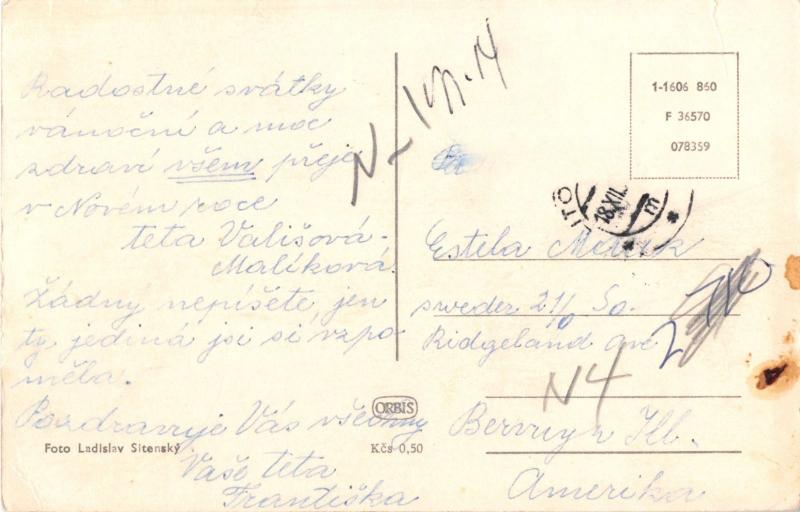 Radostné svátky
vánoční a moc
zdraví všem přeje
v Novém roce
teta Vališová-
Malíková.
Žádny nepíšete, jen
ty jediná jsi si vzpo-
měla.
Pozdravuje Vás všechny
Vaše teta
Františka
Foto Ladislav Sitenský
ORBIS
Kčs 0,50
1-1606 860
F 36570
078359
18.XII.
m
Estela
So.
Ridgeland ave
N4
Berwyn Ill.
Amerika